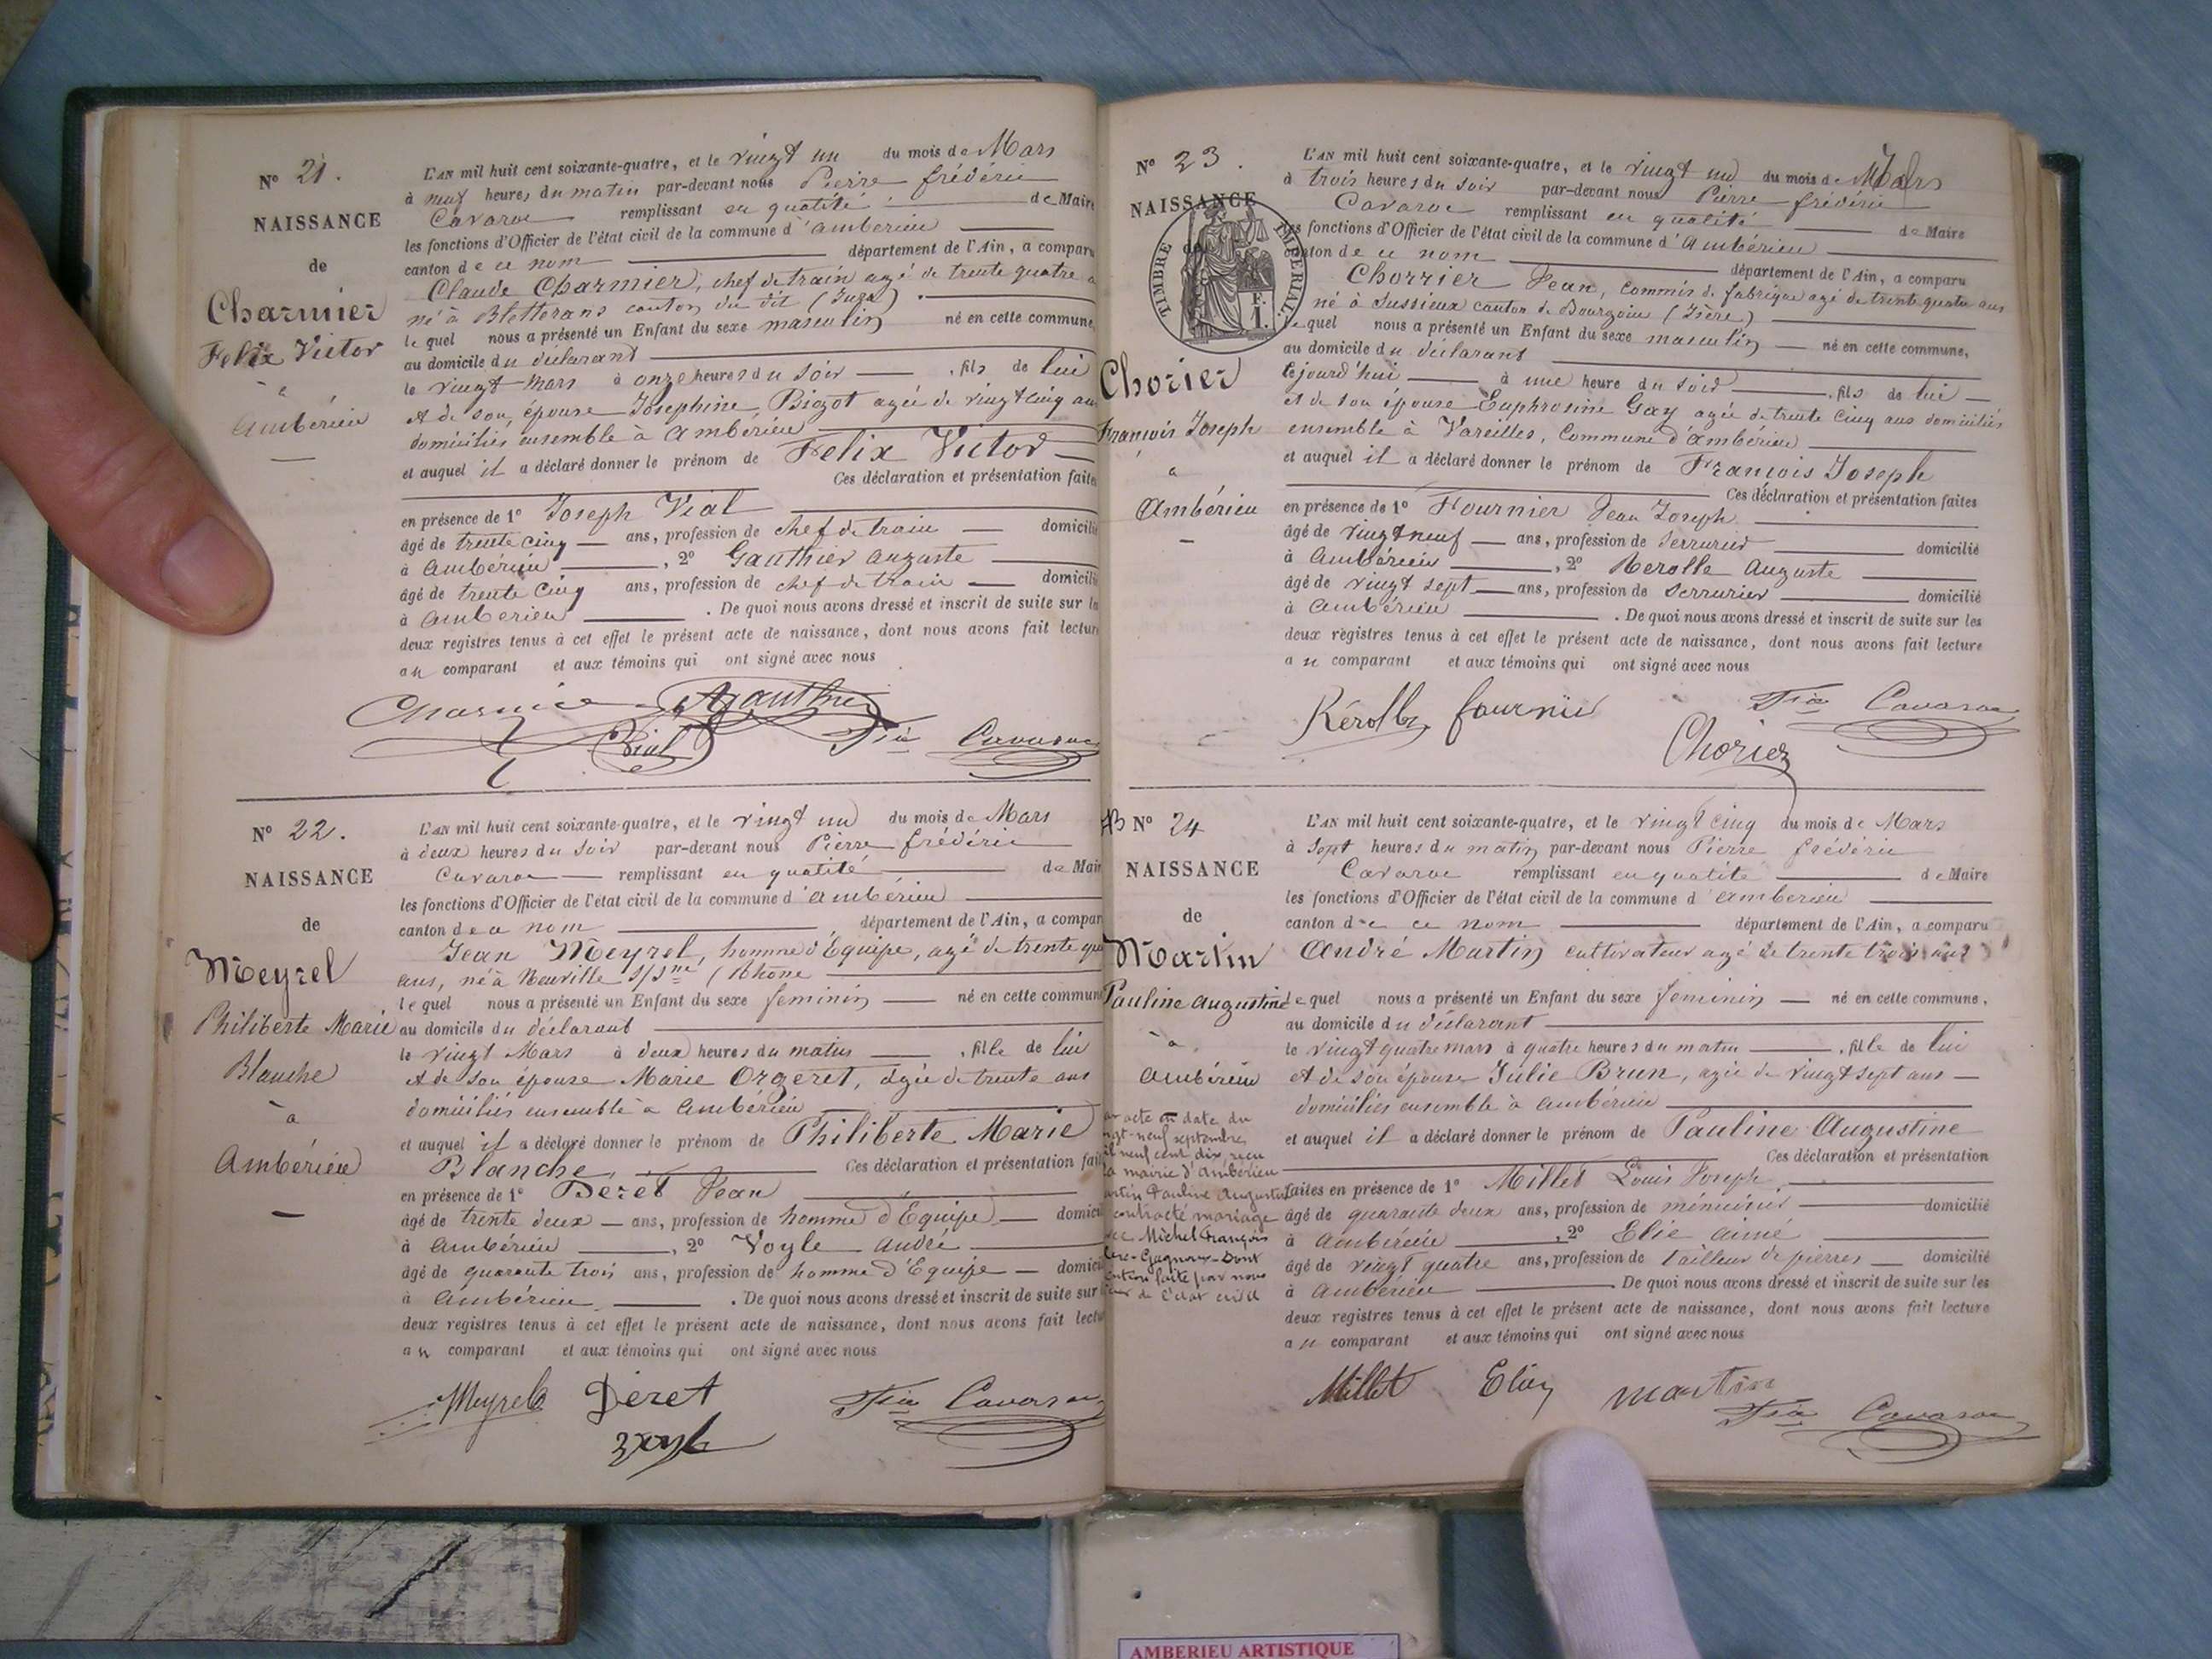 N° 21.
NAISSANCE
de
Charmier
Felix Victor
à
Ambérieu
L'AN mil huit cent soixante-quatre, et le vingt un du mois de Mars
à neuf heures du matin par-devant nous Pierre frédéric
Cavaroc remplissant en qualité de Maire
les fonctions d'Officier de l'état civil de la commune d'ambérieu
canton de ce nom département de l'Ain, a comparu
Claude Charmier, chef de train agé de trente quatre a
né à Bletterans canton du dit (Jura)
lequel nous a présenté un Enfant du sexe masculin né en cette commune,
au domicile du déclarant
le vingt mars à onze heures du soir, fils de lui
et de son épouse Josephine Bigot agée de vingt cinq ans
domiciliés ensemble à Ambérieu
et auquel il a déclaré donner le prénom de Felix Victor
Ces déclaration et présentation faites
en présence de 1° Joseph Vial
âgé de trente cinq ans, profession de chef de train domicilié
à Ambérieu, 2° Gauthier auguste
âgé de trente cinq ans, profession de chef de train domicilié
à Ambérieu. De quoi nous avons dressé et inscrit de suite sur les
deux registres tenus à cet effet le présent acte de naissance, dont nous avons fait lecture
au comparant et aux témoins qui ont signé avec nous
Charmier Gauthier
Vial Fic Cavaroc
N° 22.
NAISSANCE
de
Meyrel
Philiberte Marie
Blanche
à
Ambérieu
L'AN mil huit cent soixante-quatre, et le vingt un du mois de Mars
à deux heures du soir par-devant nous Pierre frédéric
Cavaroc remplissant en qualité de Mair
les fonctions d'Officier de l'état civil de la commune d'ambérieu
canton de ce nom département de l'Ain, a compar
Jean Meyrel, homme d'Equipe, agé de trente qua
ans, né à Neuville s/sne (Rhone
lequel nous a présenté un Enfant du sexe feminin né en cette commune
au domicile du déclarant
le vingt Mars à deux heures du matin, fille de lui
et de son épouse Marie Orgeret, agée de trente ans
domiciliés ensemble à Ambérieu
et auquel il a déclaré donner le prénom de Philiberte Marie
Blanche, Ces déclaration et présentation fait
en présence de 1° Déret Jean
âgé de trente deux ans, profession de homme d'Equipe domici
à Ambérieu, 2° Voyle André
âgé de quarante trois ans, profession de homme d'Equipe domici
à Ambérieu. De quoi nous avons dressé et inscrit de suite sur
deux registres tenus à cet effet le présent acte de naissance, dont nous avons fait lectu
au comparant et aux témoins qui ont signé avec nous
Meyrel Déret Fic Cavaroc
N° 23.
NAISSANCE
de
TIMBRE IMPERIAL.
F. I.
Chorier
François Joseph
à
Ambérieu
L'AN mil huit cent soixante-quatre, et le vingt un du mois de Mars
à trois heures du soir par-devant nous Pierre frédéric
Cavaroc remplissant en qualité de Maire
les fonctions d'Officier de l'état civil de la commune d'Ambérieu
canton de ce nom département de l'Ain, a comparu
Chorrier Jean, Commis de fabrique agé de trente quatre ans
né à Sussieux canton de Bourgoin (Isère)
lequel nous a présenté un Enfant du sexe masculin né en cette commune,
au domicile du déclarant
cejourd'hui à une heure du soir, fils de lui
et de son épouse Euphrosine Gay agée de trente cinq ans domiciliés
ensemble à Vareilles, Commune d'Ambérieu
et auquel il a déclaré donner le prénom de François Joseph
Ces déclaration et présentation faites
en présence de 1° Fournier Jean Joseph
âgé de vingt neuf ans, profession de Serrurier domicilié
à Ambérieu, 2° Kerolle Auguste
âgé de vingt sept ans, profession de Serrurier domicilié
à Ambérieu. De quoi nous avons dressé et inscrit de suite sur les
deux registres tenus à cet effet le présent acte de naissance, dont nous avons fait lecture
au comparant et aux témoins qui ont signé avec nous
Kérolle fournier Fic Cavaroc
Chorier
N° 24
NAISSANCE
de
Martin
Pauline Augustine
à
Ambérieu
acte en date du
septembre
neuf cent dix, reçu
la mairie d'Ambérieu
Pauline Augustine
contracté mariage
Michel François
Gagneux - Dont
faite par nous
de l'état civil
L'AN mil huit cent soixante-quatre, et le vingt cinq du mois de Mars
à sept heures du matin par-devant nous Pierre frédéric
Cavaroc remplissant en qualité de Maire
les fonctions d'Officier de l'état civil de la commune d'Ambérieu
canton de ce nom département de l'Ain, a comparu
André Martin cultivateur agé de trente trois ans
lequel nous a présenté un Enfant du sexe feminin né en cette commune,
au domicile du déclarant
le vingt quatre mars à quatre heures du matin, fille de lui
et de son épouse Julie Brun, agée de vingt sept ans
domiciliés ensemble à Ambérieu
et auquel il a déclaré donner le prénom de Pauline Augustine
Ces déclaration et présentation
faites en présence de 1° Millet Louis Joseph,
âgé de quarante deux ans, profession de menuisier domicilié
à Ambérieu, 2° Elie aimé
âgé de vingt quatre ans, profession de tailleur de pierres domicilié
à Ambérieu. De quoi nous avons dressé et inscrit de suite sur les
deux registres tenus à cet effet le présent acte de naissance, dont nous avons fait lecture
au comparant et aux témoins qui ont signé avec nous
Millet Martin
Fic Cavaroc
AMBERIEU ARTISTIQUE